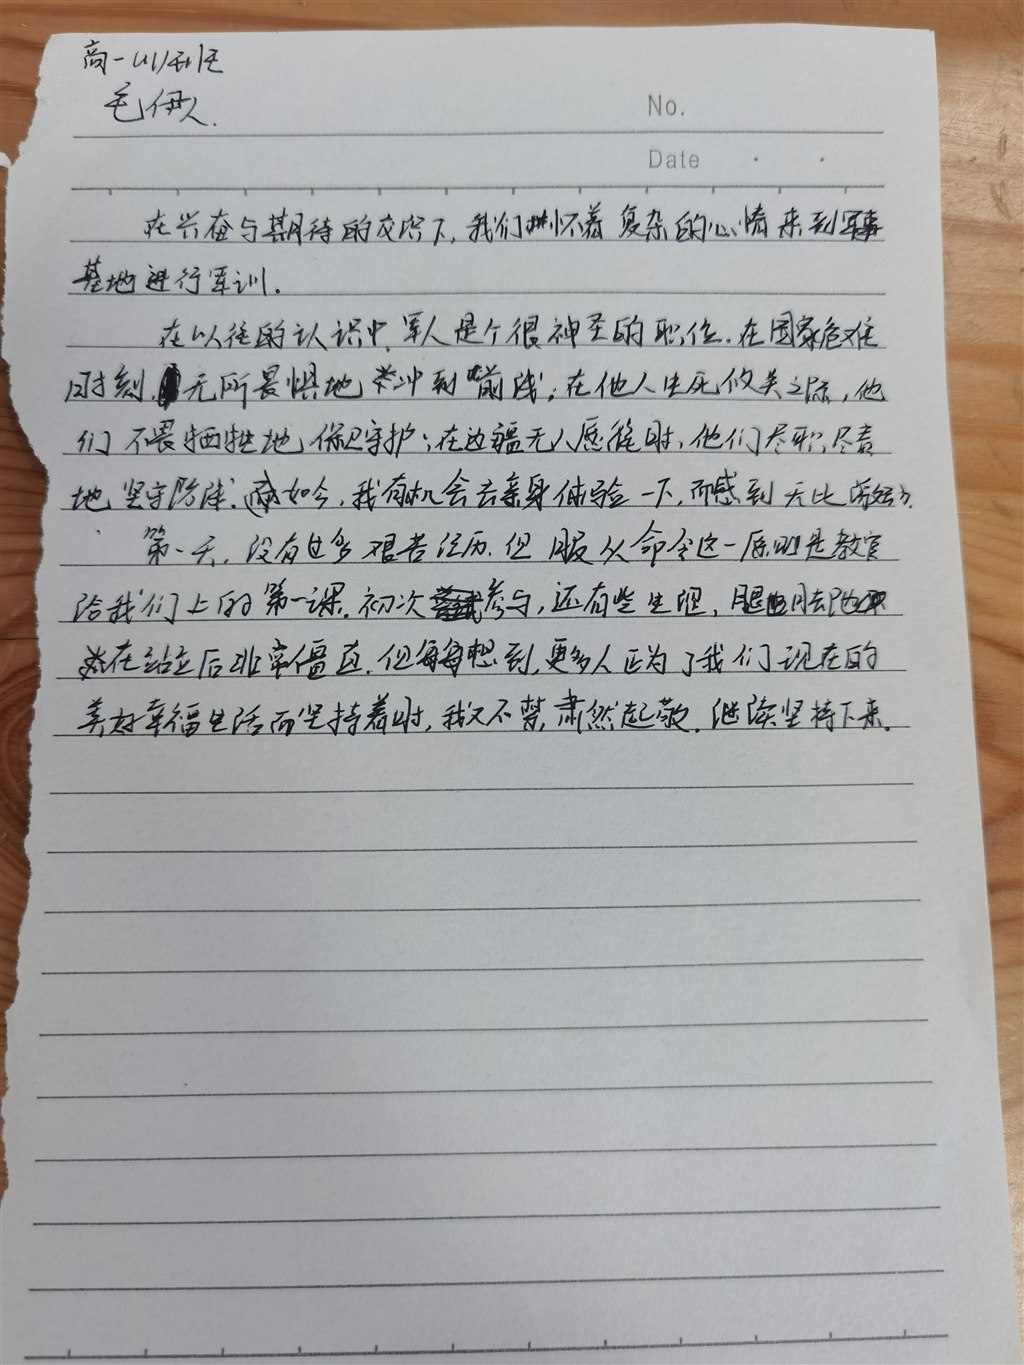 高一(1)班
毛伊人.
No.
Date
在兴奋与期待的交织下,我们怀着复杂的心情来到军事
基地进行军训.
在以往的认识中,军人是个很神圣的职位.在国家危难
时刻,无所畏惧地冲到"前线";在他人生死攸关之际,他
们不畏牺牲地保卫守护;在边疆无人愿径时,他们尽职尽责
地坚守防线.如今,我有机会去亲身体验一下,而感到无比
第一天,没有过多艰苦经历.但服从命令这一原则是教官
给我们上的第一课.初次参与,还有些生疏,腿
在站立后非常僵直.但每每想到,更多人正为了我们现在的
美好幸福生活而坚持着时,我又不禁肃然起敬.继续坚持下来.